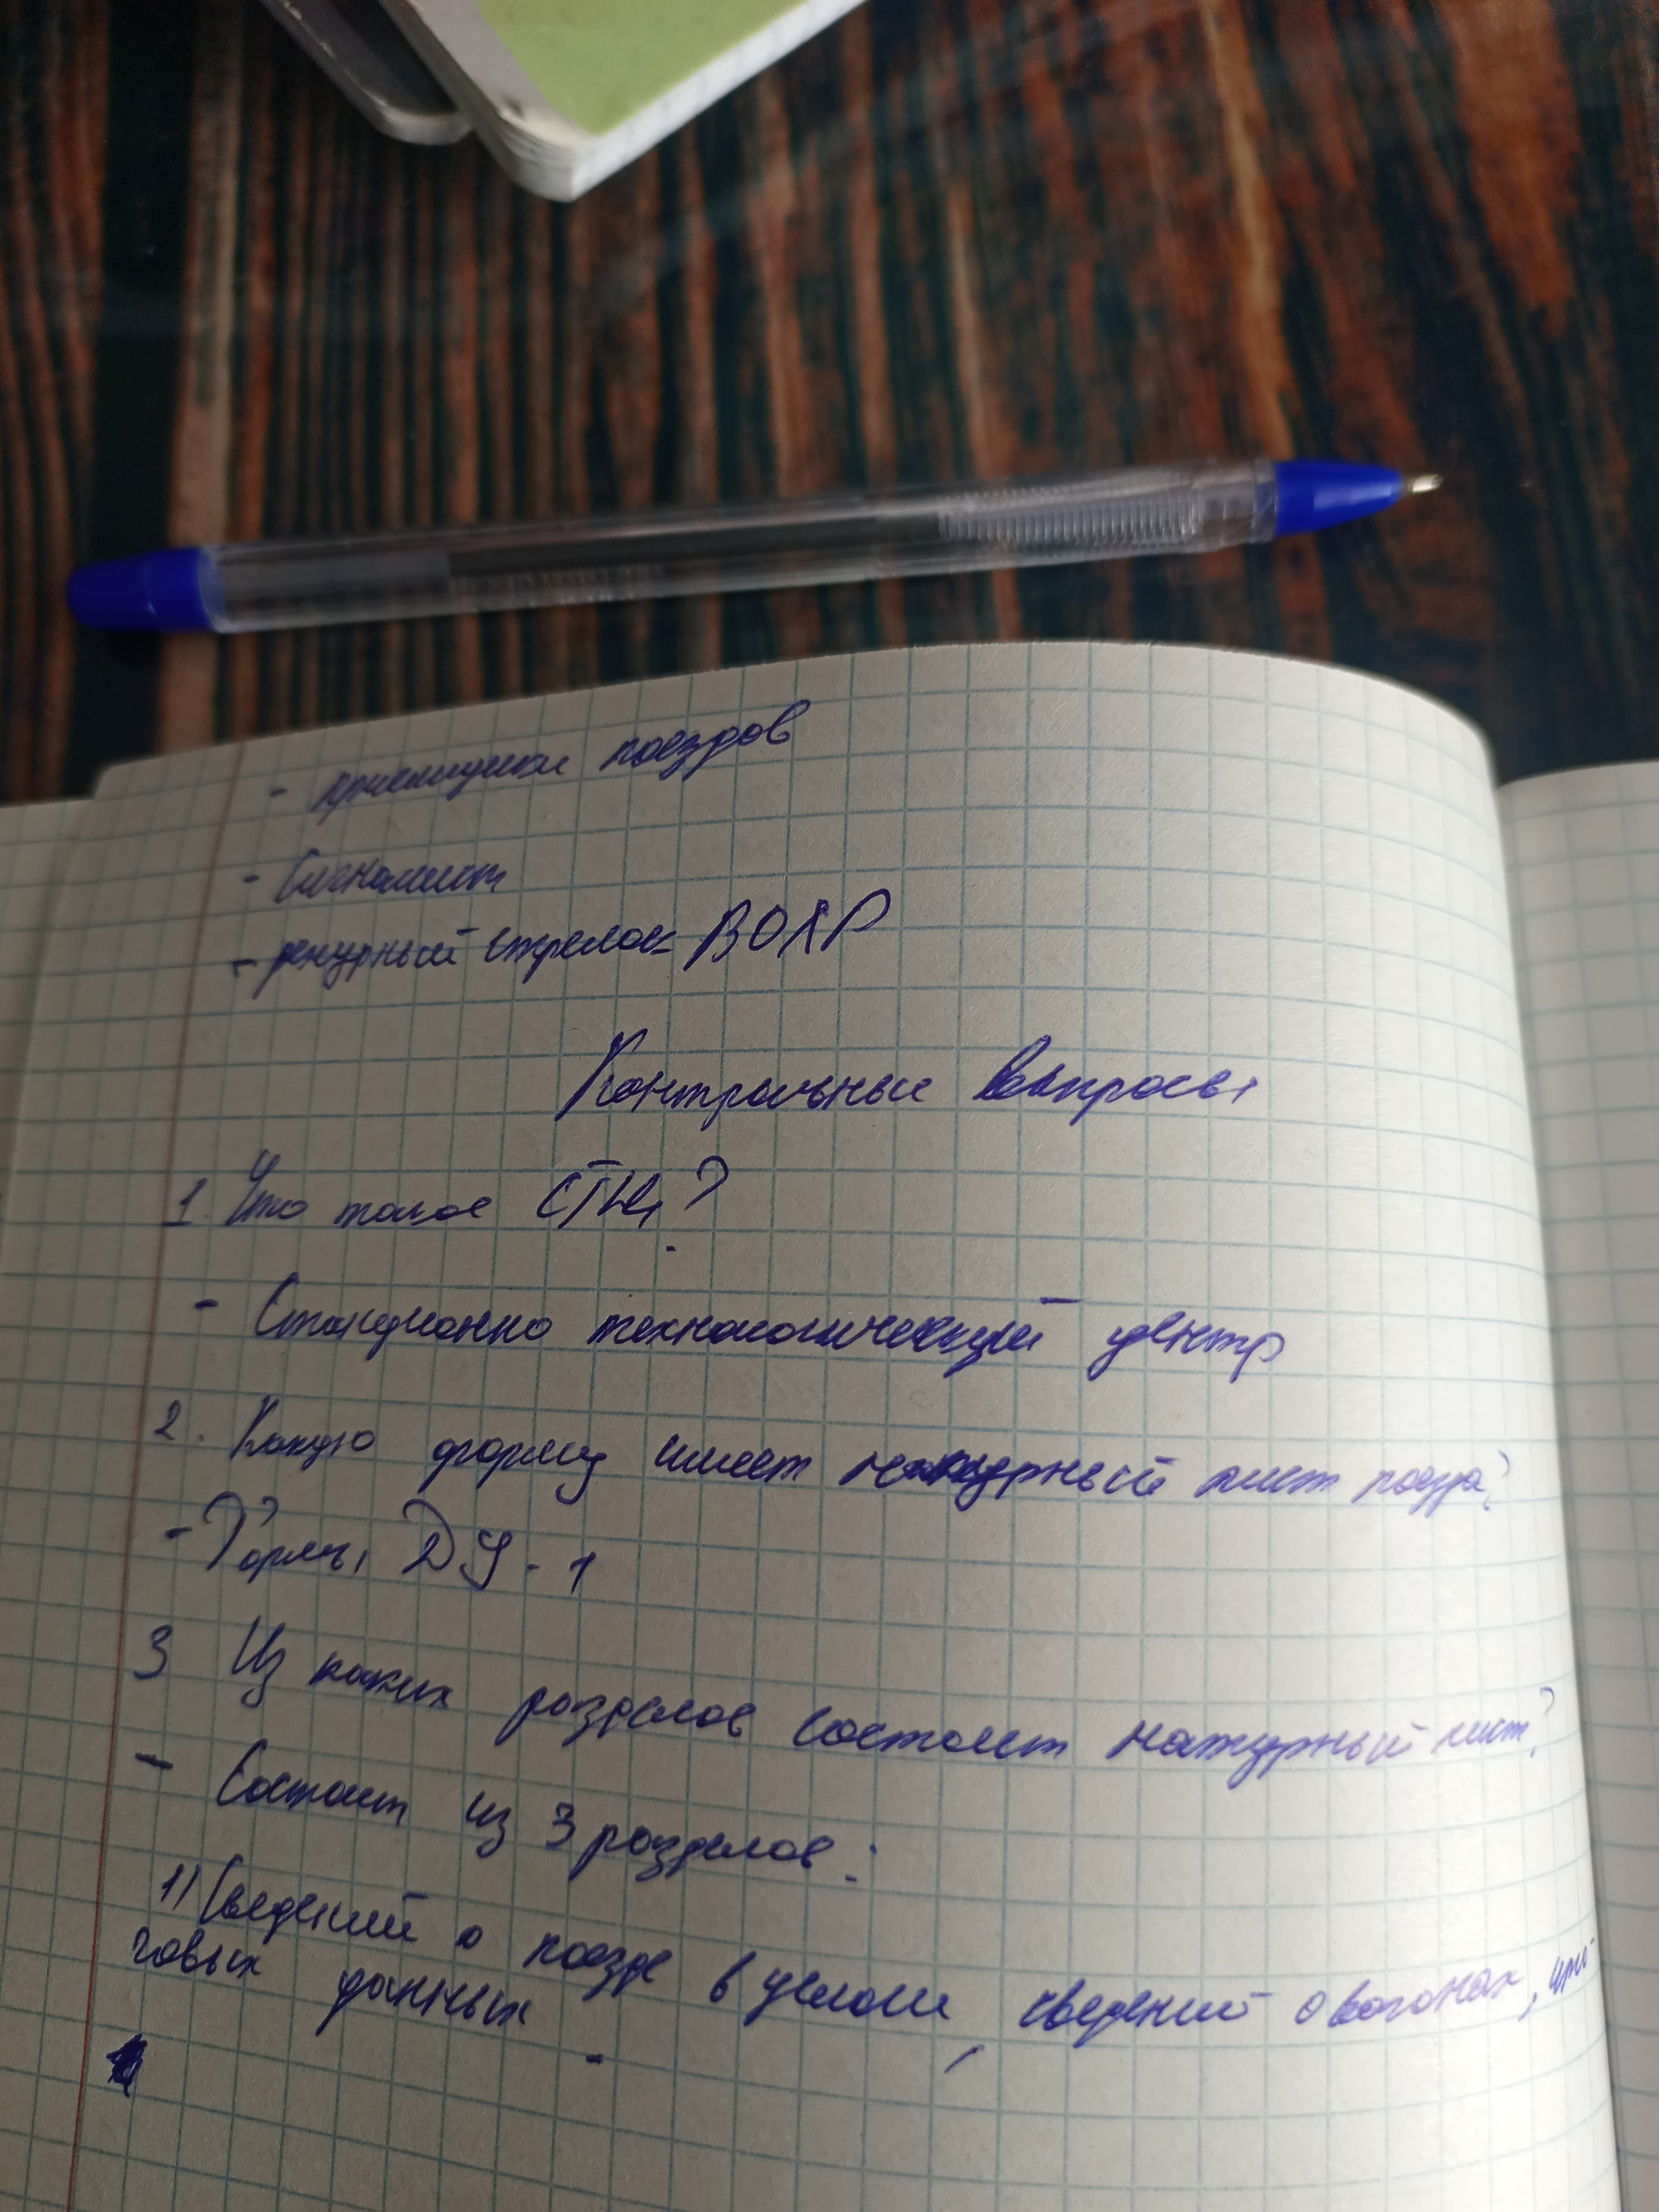 - приемщики поездов
- Сигналист
- дежурный стрелок ВОХР
Контрольные вопросы
1. Что такое СТЦ?
- Станционно технологический центр
2. Какую форму имеет натурный лист поезда?
- Формы ДУ-1
3 Из каких разделов состоит натурный лист?
- Состоит из 3 разделов:
1) Сведений о поезде в целом, сведений о вагонах, ито-
говых данных